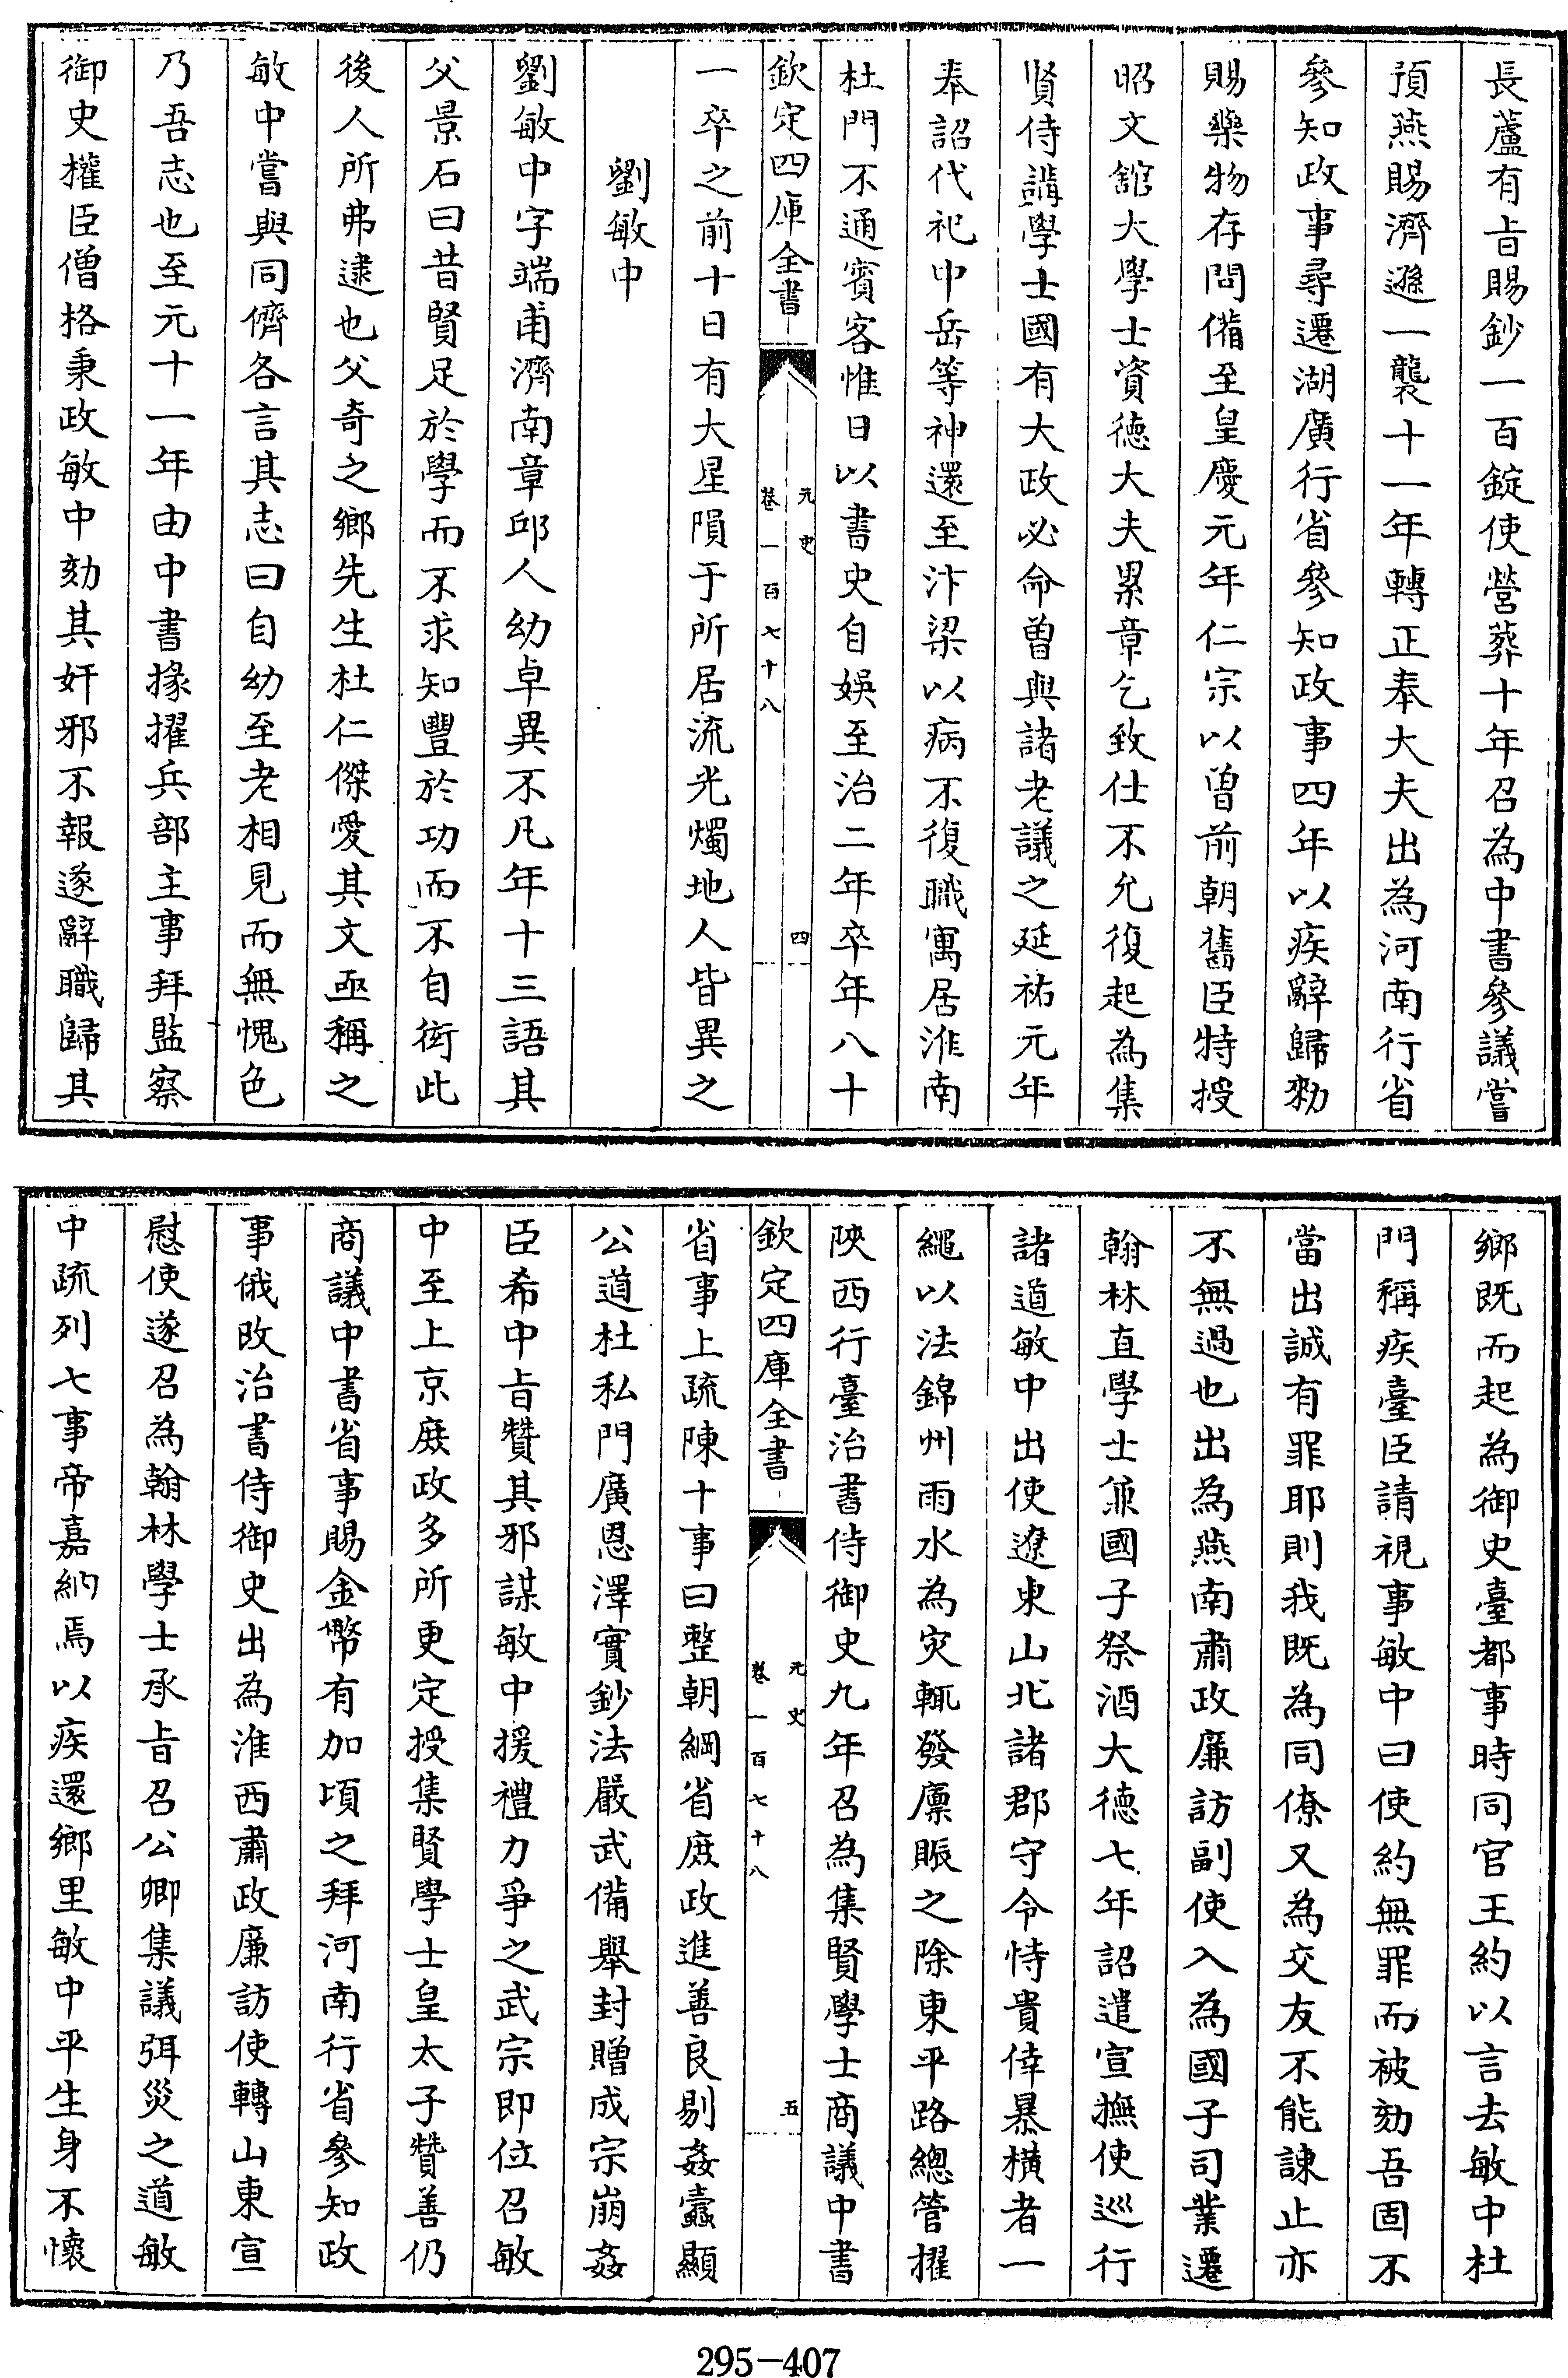 長蘆有旨賜鈔一百錠使營葬十年召為中書參議嘗
預燕賜濟遜一襲十一年轉正奉大夫出為河南行省
參知政事尋遷湖廣行省參知政事四年以疾辭歸勑
賜藥物存問備至皇慶元年仁宗以曽前朝舊臣特授
昭文館大學士資徳大夫累章乞致仕不允復起為集
賢侍講學士國有大政必命曽與諸老議之延祐元年
奉詔代祀中岳等神還至汴梁以病不復職寓居淮南
杜門不通賓客惟日以書史自娛至治二年卒年八十
欽定四庫全書
元史
卷一百七十八
四
一卒之前十日有大星隕于所居流光燭地人皆異之
劉敏中
劉敏中字端甫濟南章邱人幼卓異不凡年十三語其
父景石曰昔賢足於學而不求知豐於功而不自衒此
後人所弗逮也父奇之鄉先生杜仁傑愛其文亟稱之
敏中嘗與同儕各言其志曰自幼至老相見而無愧色
乃吾志也至元十一年由中書掾擢兵部主事拜監察
御史權臣僧格秉政敏中劾其奸邪不報遂辭職歸其
鄉既而起為御史臺都事時同官王約以言去敏中杜
門稱疾臺臣請視事敏中曰使約無罪而被劾吾固不
當出誠有罪耶則我既為同僚又為交友不能諫止亦
不無過也出為燕南肅政廉訪副使入為國子司業遷
翰林直學士兼國子祭酒大徳七年詔遣宣撫使巡行
諸道敏中出使遼東山北諸郡守令恃貴倖暴横者一
繩以法錦州雨水為灾輒發廩賑之除東平路總管擢
陜西行臺治書侍御史九年召為集賢學士商議中書
欽定四庫全書
元史
卷一百七十八
五
省事上疏陳十事曰整朝綱省庶政進善良剔姦蠧顯
公道杜私門廣恩澤實鈔法嚴武備舉封贈成宗崩姦
臣希中旨贊其邪謀敏中援禮力爭之武宗即位召敏
中至上京庶政多所更定授集賢學士皇太子贊善仍
商議中書省事賜金幣有加頃之拜河南行省參知政
事俄改治書侍御史出為淮西肅政廉訪使轉山東宣
慰使遂召為翰林學士承旨召公卿集議弭災之道敏
中疏列七事帝嘉納焉以疾還鄉里敏中平生身不懷
295-407